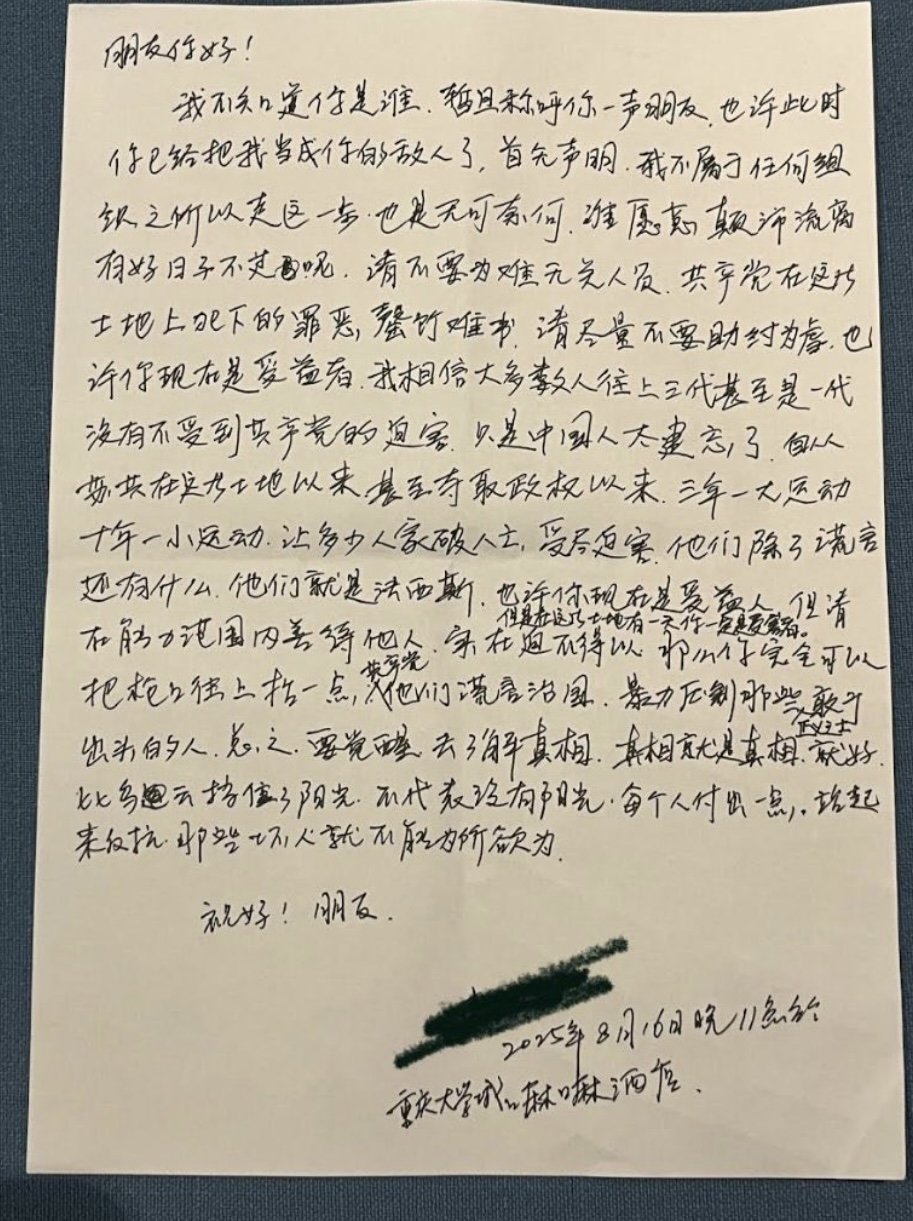 朋友你好!
我不知道你是谁.暂且称呼你一声朋友.也许此时
你已给把我当成你的敌人了,首先声明.我不属于任何组
织之所以走这一步.也是无可奈何.谁愿意颠沛流离
有好日子不过呢.请不要为难无关人员.共产党在这片
土地上犯下的罪恶,罄竹难书.请尽量不要助纣为虐.也
许你现在是受益者.我相信大多数人往上三代甚至是一代
没有不受到共产党的迫害.只是中国人太健忘了.自从
苏共在这片土地以来.甚至夺取政权以来.三年一大运动
十年一小运动.让多少人家破人亡,受尽迫害.他们除了谎言
还有什么.他们就是法西斯.也许你现在是受益人.但请
但是在这片土地有一天你一定是受害者.
在能力范围内善待他人.实在迫不得以.那么你完全可以
把枪口往上抬一点,共产党他们谎言治国.暴力压制那些敢于
正义之士
出头的人.总之.要觉醒.去了解真相.真相就是真相.就好
比乌云挡住了阳光.不代表没有阳光.每个人付出一点,.站起
来反抗.那些坏人就不能为所欲为.
祝好!朋友.
2025年8月16日晚11点于
重庆大学城口麻口麻酒店.